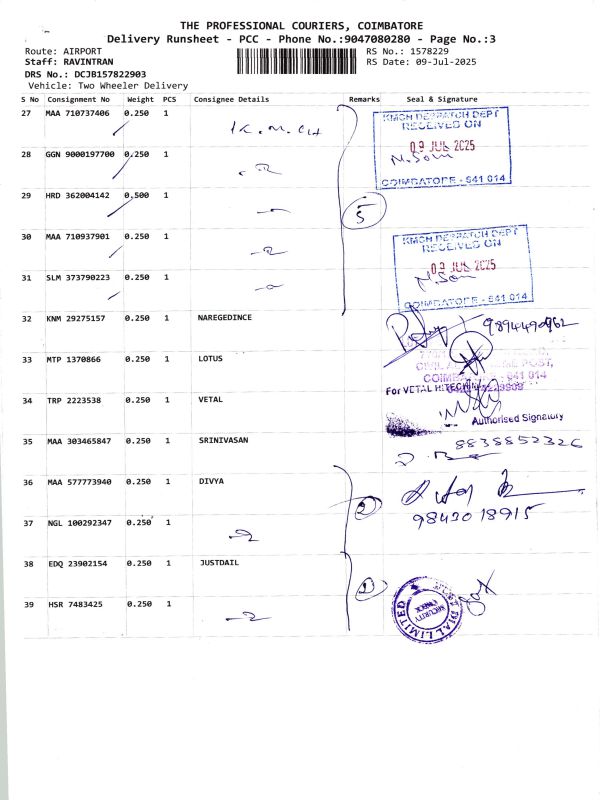 THE PROFESSIONAL COURIERS, COIMBATORE
Delivery Runsheet - PCC - Phone No.:9047080280 - Page No.:3
Route: AIRPORT RS No.: 1578229
Staff: RAVINTRAN RS Date: 09-Jul-2025
DRS No.: DCJB157822903
Vehicle: Two Wheeler Delivery
S No Consignment No Weight PCS Consignee Details Remarks Seal & Signature
27 MAA 710737406 0.250 1 K.M.CH
KMCH DESPATCH DEPT
RECEIVED ON
09 JUL 2025
COIMBATORE - 641 014
28 GGN 9000197700 0.250 1
29 HRD 362004142 0.500 1
5
30 MAA 710937901 0.250 1
KMCH DESPATCH DEPT
RECEIVED ON
09 JUL 2025
COIMBATORE - 641 014
31 SLM 373790223 0.250 1
32 KNM 29275157 0.250 1 NAREGEDINCE 9894490962
33 MTP 1370866 0.250 1 LOTUS
POST,
641 014
34 TRP 2223538 0.250 1 VETAL
For VETAL HITECH
Authorised Signatory
35 MAA 303465847 0.250 1 SRINIVASAN 8838852326
36 MAA 577773940 0.250 1 DIVYA
2
9843018915
37 NGL 100292347 0.250 1
38 EDQ 23902154 0.250 1 JUSTDAIL
2
39 HSR 7483425 0.250 1
JUST DIAL LIMITED
SECURITY
CHECK